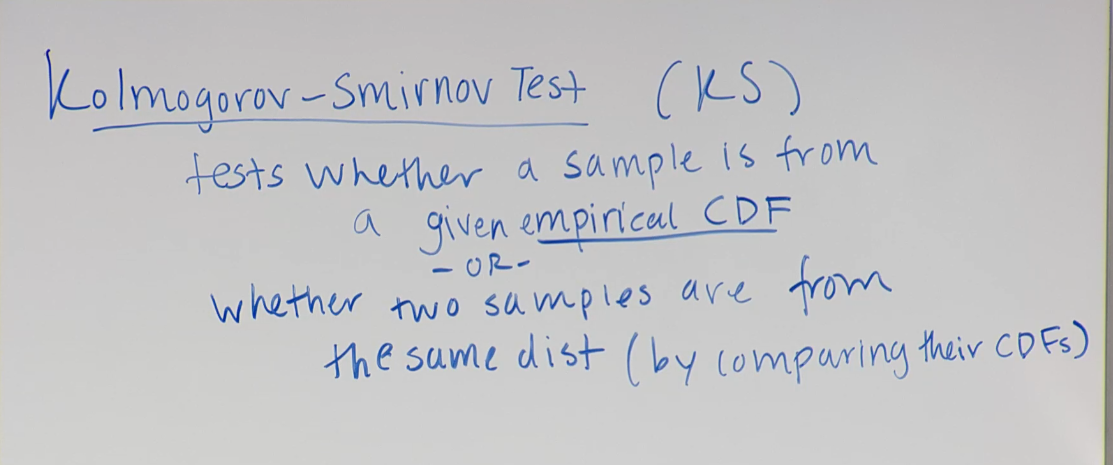 Kolmogorov-Smirnov Test (KS)
tests whether a sample is from
a given empirical CDF
- OR -
whether two samples are from
the same dist (by comparing their CDFs)